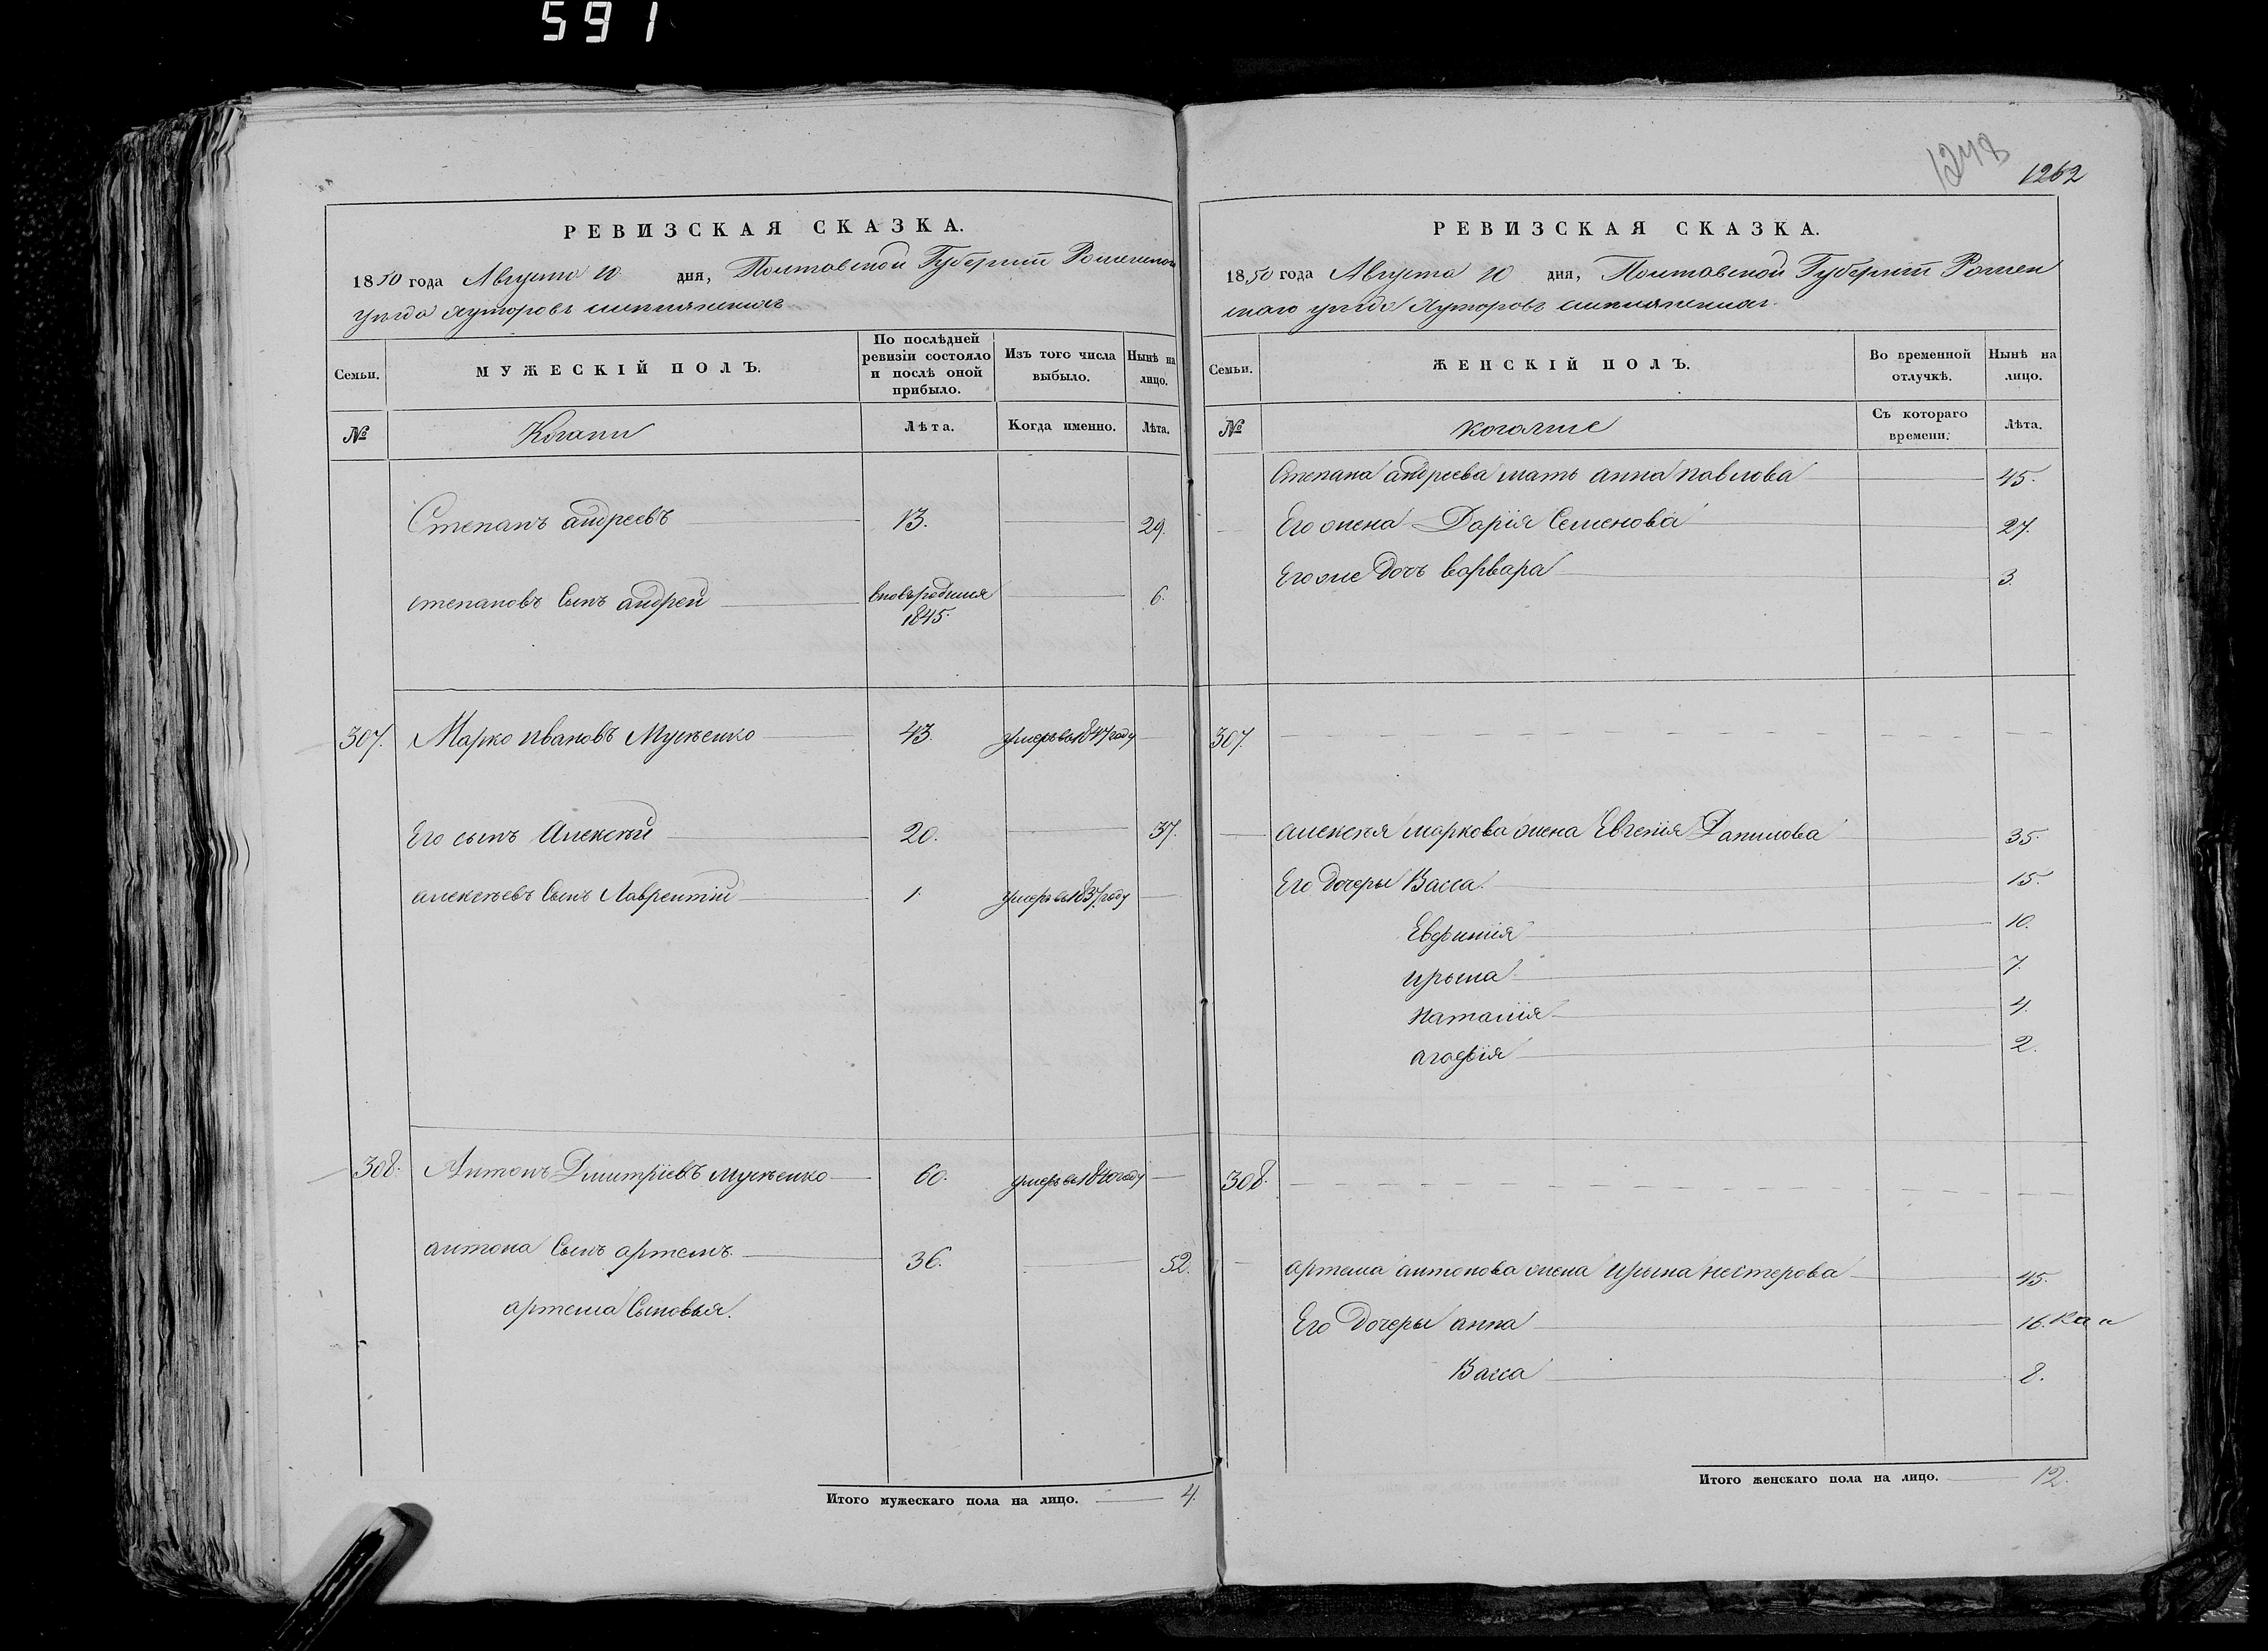 591
РЕВИЗСКАЯ СКАЗКА.
1850 года Августа 10 дня, Полтавской Губерніи Роменского
уезда хуторовъ
Семьи. МУЖЕСКІЙ ПОЛЪ. По послѣдней ревизіи состояло и послѣ оной прибыло. Изъ того числа выбыло. Нынѣ на лицо.
№ Козаки Лѣта. Когда именно. Лѣта.
Степанъ андреевъ 13. 29.
степановъ Сынъ андрей вновьродился 1845. 6.
307. Марко ивановъ 43. умеръ в 1847 году
Его сынъ Алексѣй 20. 37.
алексѣевъ Сынъ Лаврентій 1. умеръ в 1837 году
308. Антонъ Дмитріевъ 60. умеръ в 1840 году
антона Сынъ артемъ. 36. 52.
артема Сыновья.
Итого мужескаго пола на лицо. 4.
1248
1262
РЕВИЗСКАЯ СКАЗКА.
1850 года Августа 10 дня, Полтавской Губерніи Ромен
ского уезда Хуторовъ
Семьи. ЖЕНСКІЙ ПОЛЪ. Во временной отлучкѣ. Нынѣ на лицо.
№ Съ котораго времени. Лѣта.
Степана андреева мать анна павлова 45.
Его жена Дарія Семенова 27.
Его же дочь варвара 3.
307.
алексѣя маркова жена Евгенія Данилова 35.
Его дочеры Васса. 15.
Евфимія 10.
ирына 7.
наталія 4.
агафія 2.
308.
артема антонова жена Ирына нестерова 45.
Его Дочеры анна 16.
Васса 8.
Итого женскаго пола на лицо. 12.